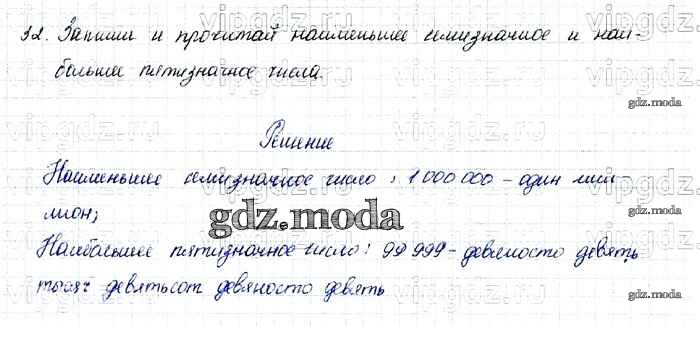 32. Запиши и прочитай наименьшее семизначное и наи-
большее пятизначное числа.
gdz.moda
Решение
Наименьшее семизначное число: 1 000 000 - один мил-
лион;
gdz.moda
Наибольшее пятизначное число: 99 999 - девяносто девять
тысяч девятьсот девяносто девять
gdz.moda
vipgdz.ru